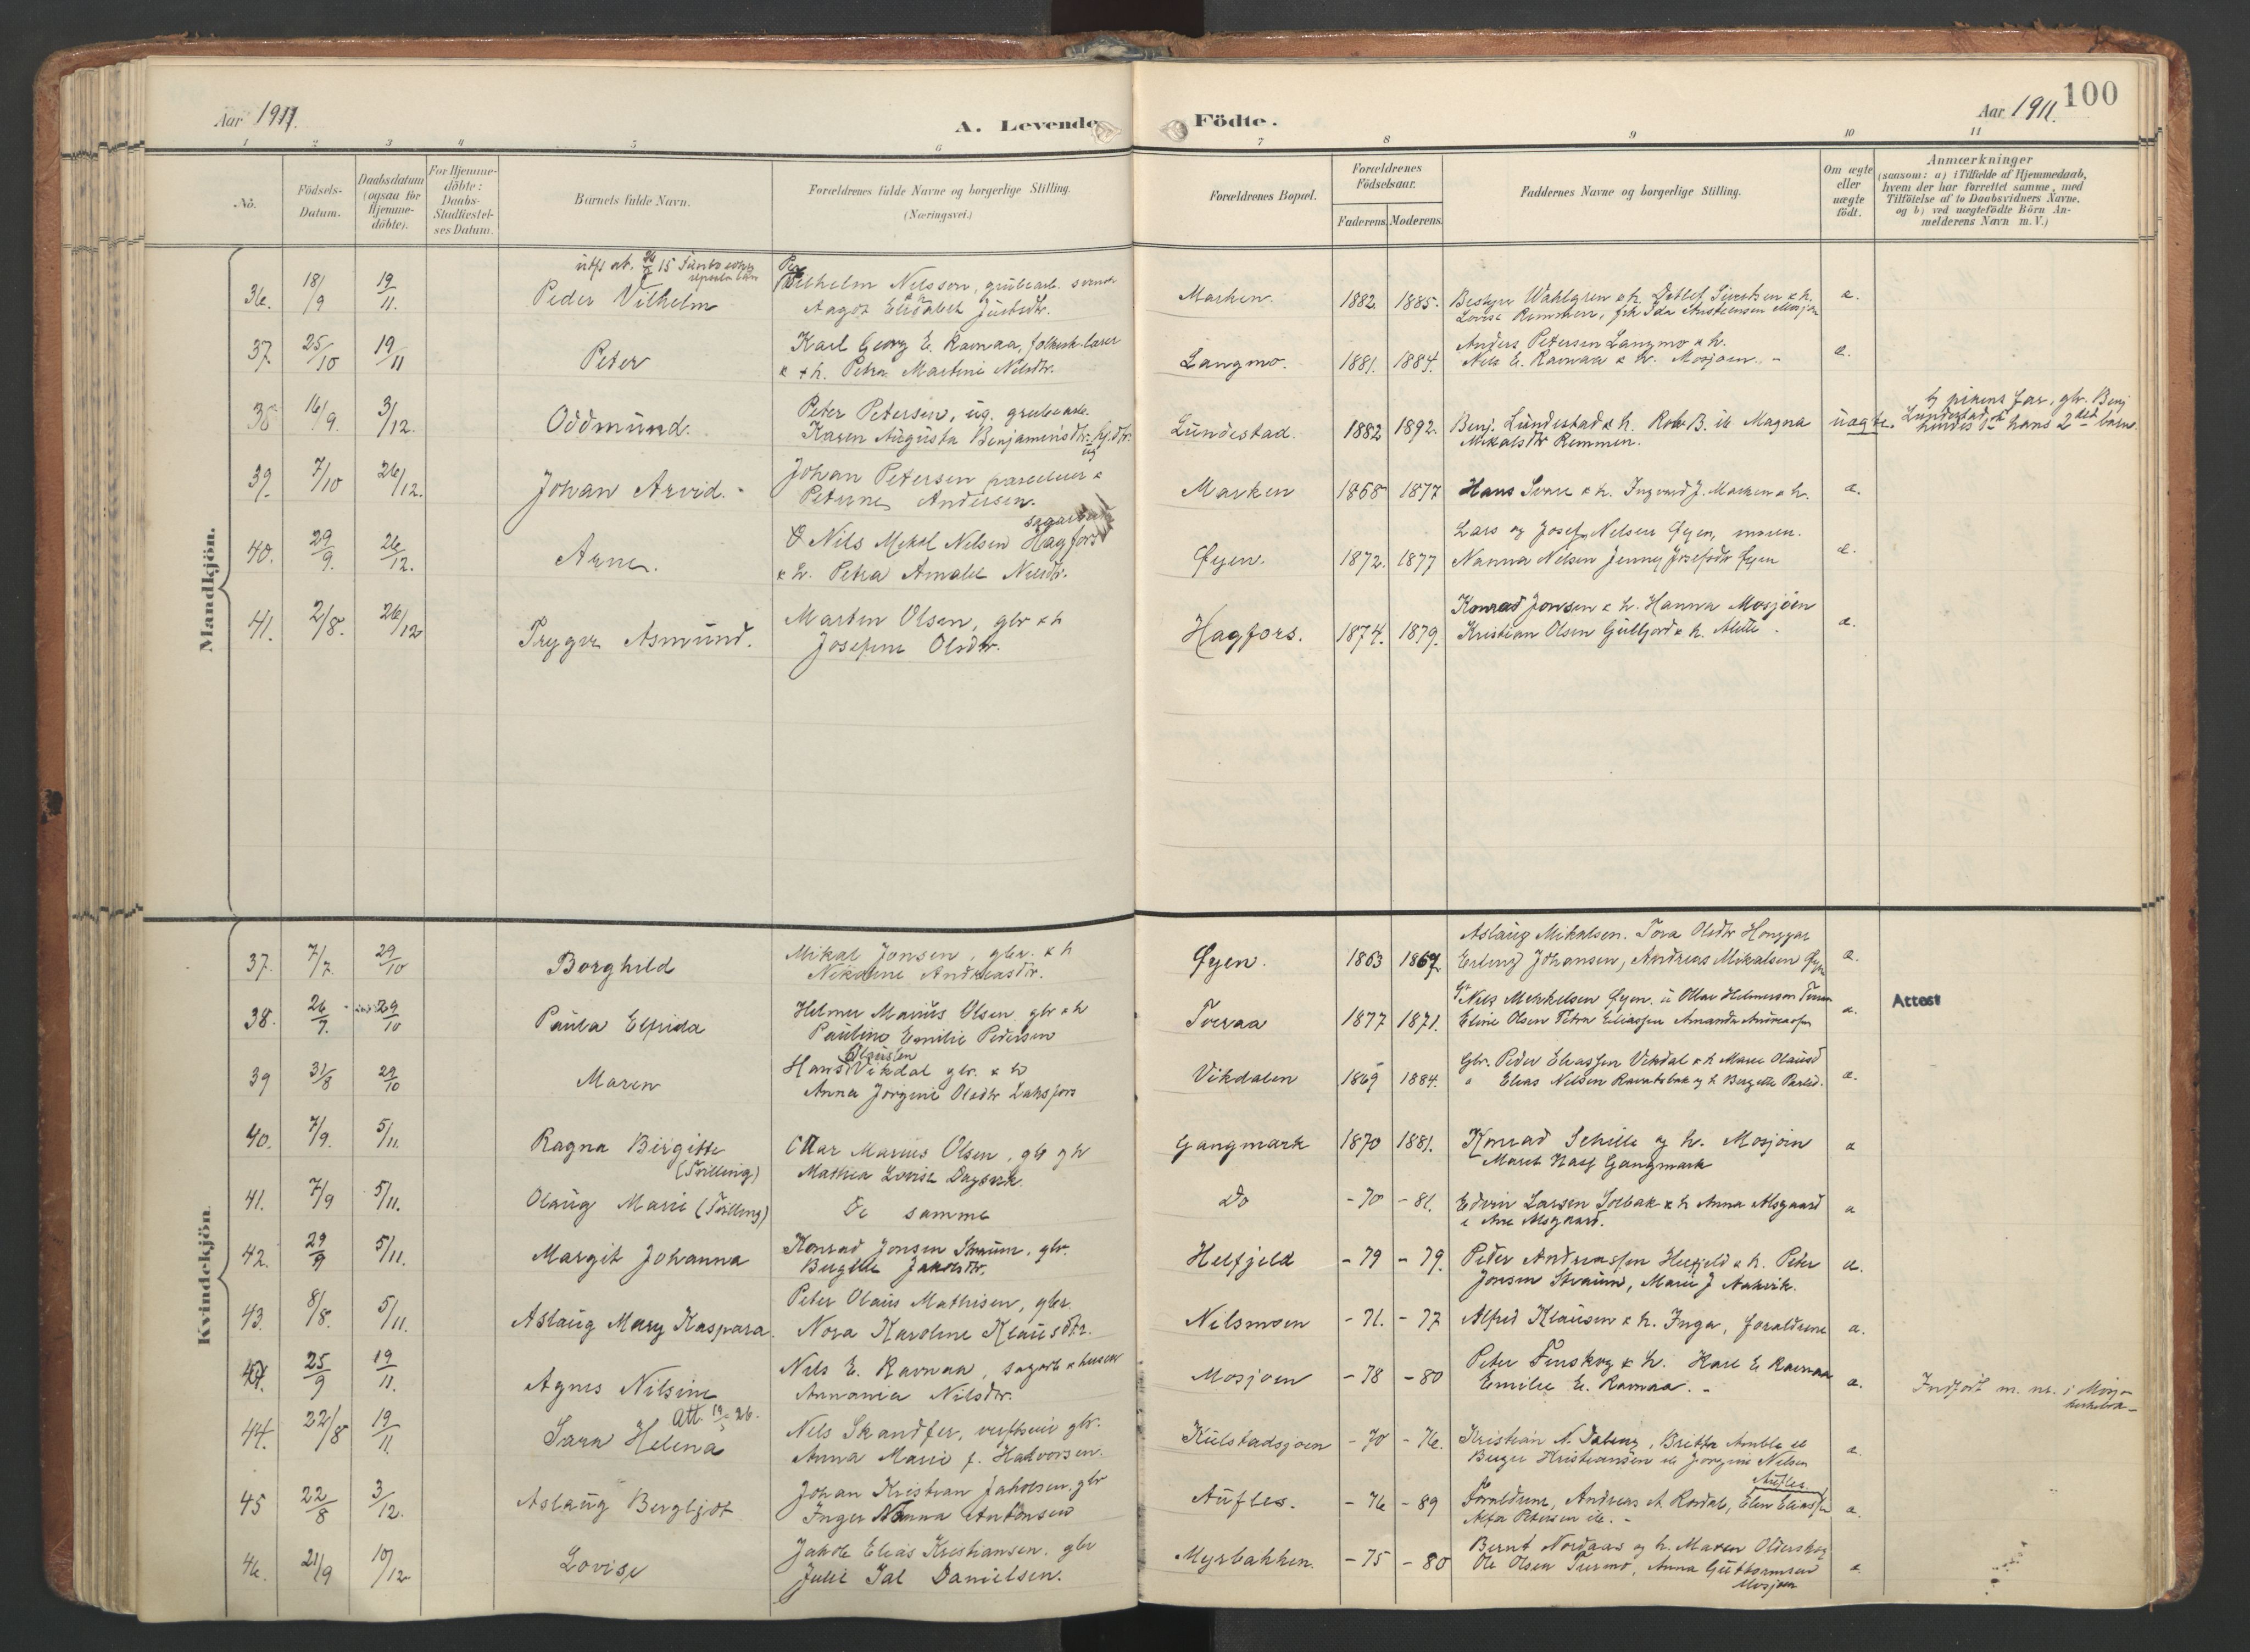 Aar 1911.
A. Levende
Födte.
Aar 1911.
100
1 2 3 4 5 6 7 8 9 10 11
No.
Födsels-Datum.
Daabsdatum (ogsaa for Hjemme-döbte).
For Hjemme-döbte: Daabs-Stadfæstel-ses Datum.
Barnets fulde Navn.
Forældrenes fulde Navne og borgerlige Stilling. (Næringsvei.)
Forældrenes Bopæl.
Forældrenes Födselsaar.
Faderens. Moderens.
Faddernes Navne og borgerlige Stilling.
Om ægte eller uægte födt.
Anmærkninger
(saasom: a) i Tilfælde af Hjemmedaab, hvem der har forrettet samme, med Tilföielse af to Daabsvidners Navne, og b) ved uægtefödte Börn An-melderens Navn m. V.)
Mandkjön.
36. 18/9 19/11. Peder Vilhelm
Vilhelm Nilsson, grubearb.
Aagot Elisabeth
Marken. 1882 1885. Bestyrer Wahlgren & h. Detlef Sivertsen & h. a.
Lovise Remmen, frk Ida
37. 25/10 19/11 Peter
Karl Georg E. Ravnaa, folkesk.lærer
& h. Petra Martine Nilsdtr.
Langmo. 1881. 1884. Anders Petersen Langmo & h.
Nils E. Ravnaa & h. Mosjøen. - a.
38 16/9. 3/12. Oddmund.
Peter Petersen, ug. grubearb.
Karen Augusta Benjaminsdtr.
Lundestad. 1882 1892. Benj. Lundestad & h. Magna uægte.
Mikalsdtr Remmen.
pikens far, gbr. Benj
Lundestad,
hendes 1ste hans 2det barn.
39. 7/10 26/12. Johan Arvid. -
Johan Petersen &
Petrine Andersen.
Marken 1868 1877 Hans Svare & h. Ingvard J. Marken & h. a.
40. 29/9. 26/12. Arne.
Nils Mikal Nilsen Hagfors
& h. Petra Amalie Nilsdtr.
Øyen. 1872. 1877 Lars og Josef Nilsen Øyen, moren.
Nanna Nilsen Jenny Josefsdtr Øyen a.
41. 2/8. 26/12 Trygve Asmund.
Martin Olsen, gbr & h
Josefine Olsdtr.
Hagfors. 1874. 1879. Konrad Jonsen & h. Hanna Mosjøen
Kristian Olsen Gullfjord & h. Alette. a.
Kvindekjön.
37. 7/7. 29/10 Borghild
Mikal Jonsen, gbr. & h
Nikoline Andreasdtr.
Øyen. 1863 1867. Aslaug Mikalsen. Tora Olsdtr
Erling Johansen, Andreas Mikalsen Øyen a.
38. 26/7. 29/10 Paula Elfrida
Helmer Marius Olsen gbr & h
Pauline Emilie Pedersen
Toeraa 1877 1871. Nils Mikkelsen Øyen
Eline Olsen Petra Eliassen Amanda Andreassen a.
Attest
39 31/8 29/10 Maren
Hans Olaussen Vikdal gbr. & h
Anna Jørgine Olsdtr Laksfors
Vikdalen 1869 1884. Gbr. Peder Eliassen Vikdal & h Marie Olausd
Elias Nilsen a.
40. 7/9. 5/11. Ragna Birgitte
(Trilling)
Ottar Marius Olsen, gbr og h
Mathea Lovise Dagsvik
Gangmark 1870 1881. Konrad Schille og h. Mosjøen
Maret Gangmark a
41. 7/9 5/11. Olaug Marie (Trilling)
De samme
Do - 70 - 81. Edvin Larsen Solbak & h Anna Alsgaard a
42. 29/9 5/11. Margit Johanna
Konrad Jonsen Straum, gbr.
Birgitte Jakobsdtr.
Helfjeld - 79 - 79. Peder Andreassen Helfjeld & h. Peter
Jonsen Straum, Marie J a.
43. 8/8. 5/11. Aslaug Mary Kaspara.
Peter Olaus Mathisen, gbr.
Nora Karoline Klausdtr.
Nilsmoen - 71. - 77 Alfred Klausen & h. Inga, forældrene a.
25/9 19/11. Agnes Nilsine
Nils E. Ravnaa,
Annania Nilsdtr.
Mosjøen - 78 - 80 Peter Finskog & h. Karl E. Ravnaa
Emilie E. Ravnaa. - a.
Indført m. nr. i
44. 22/8 19/11. Sara Helena
Att. 26.
Nils Skandfer, gbr.
Anna Marie f. Halvorsen.
Kulstadsjøen - 70 - 76. Kristian N.
a.
45 22/8 3/12. Aslaug Bergljot
Johan Kristian Jakobsen. gbr
Inger Nanna Antonsen
Aufles. - 76 - 89 Forældrene, Andreas A. Elen Eliassen Aufles
Petersen a.
46. 21/9 10/12 Lovise
Jakob Elias Kristiansen. gbr
Julie Danielsen.
Myrbakken. - 75 - 80 Bernt Nordaas og h. Maren Olderskog
Ole Olsen Anna Guttormsen
Mosjøen